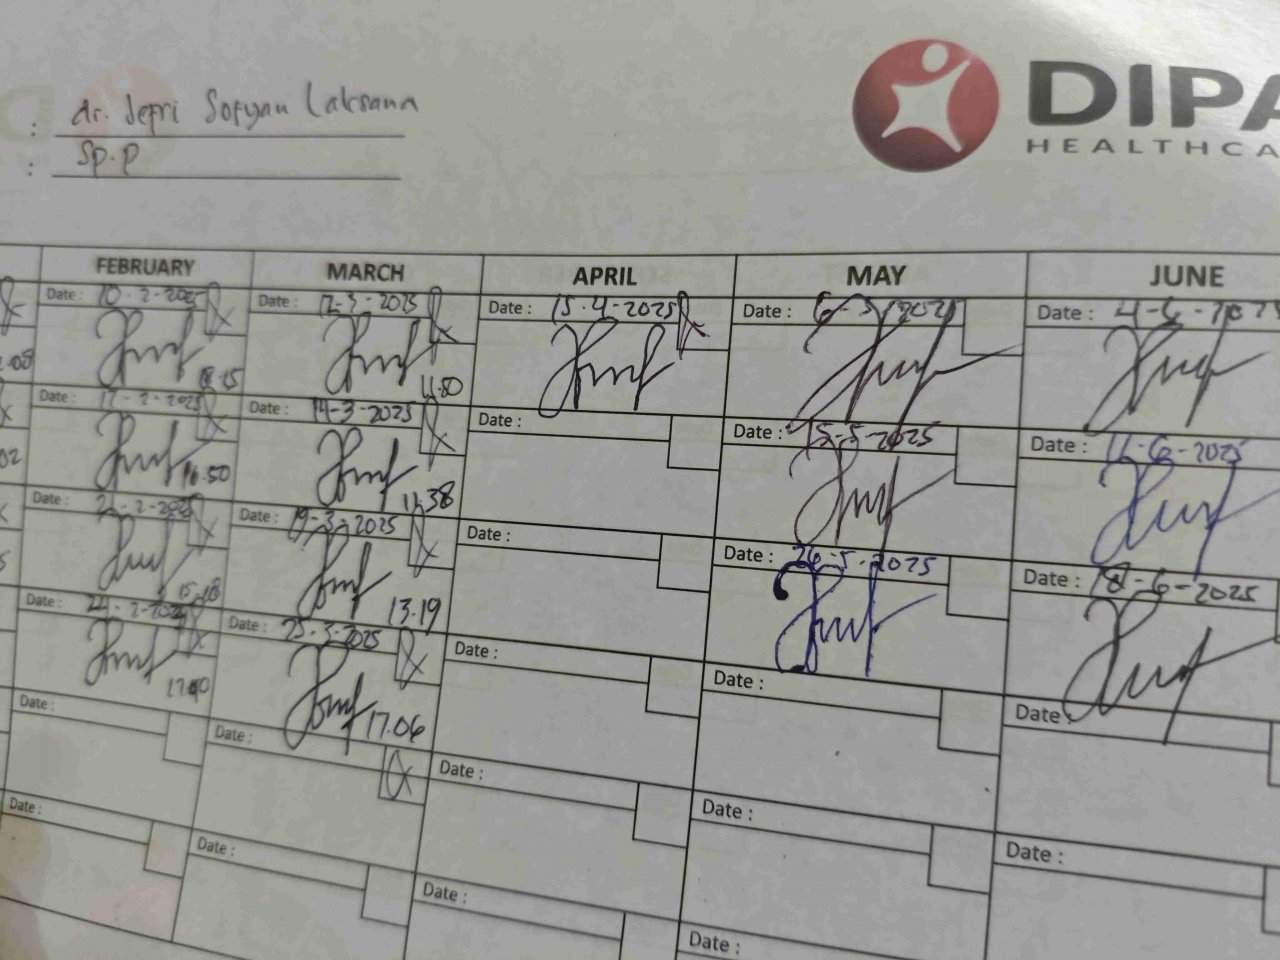 DIPA
HEALTHCA
: dr. Jepri Sofyan Laksana
: Sp.P
FEBRUARY MARCH APRIL MAY JUNE
Date : 10-2-2025 Date : 12-3-2025 Date : 15-4-2025 Date : Date : 4-6-2025
.08 11.50
Date : 17-2-2025 Date : 14-3-2025 Date : Date : 15-5-2025 Date :
02 16.50 11.38
Date : Date : 19-3-2025 Date : Date : 26-5-2025 Date : 18-6-2025
5 13.19
Date : Date : 25-3-2025 Date : Date : Date
17.06
Date : Date : Date : Date : Date :
Date : Date : Date : Date :